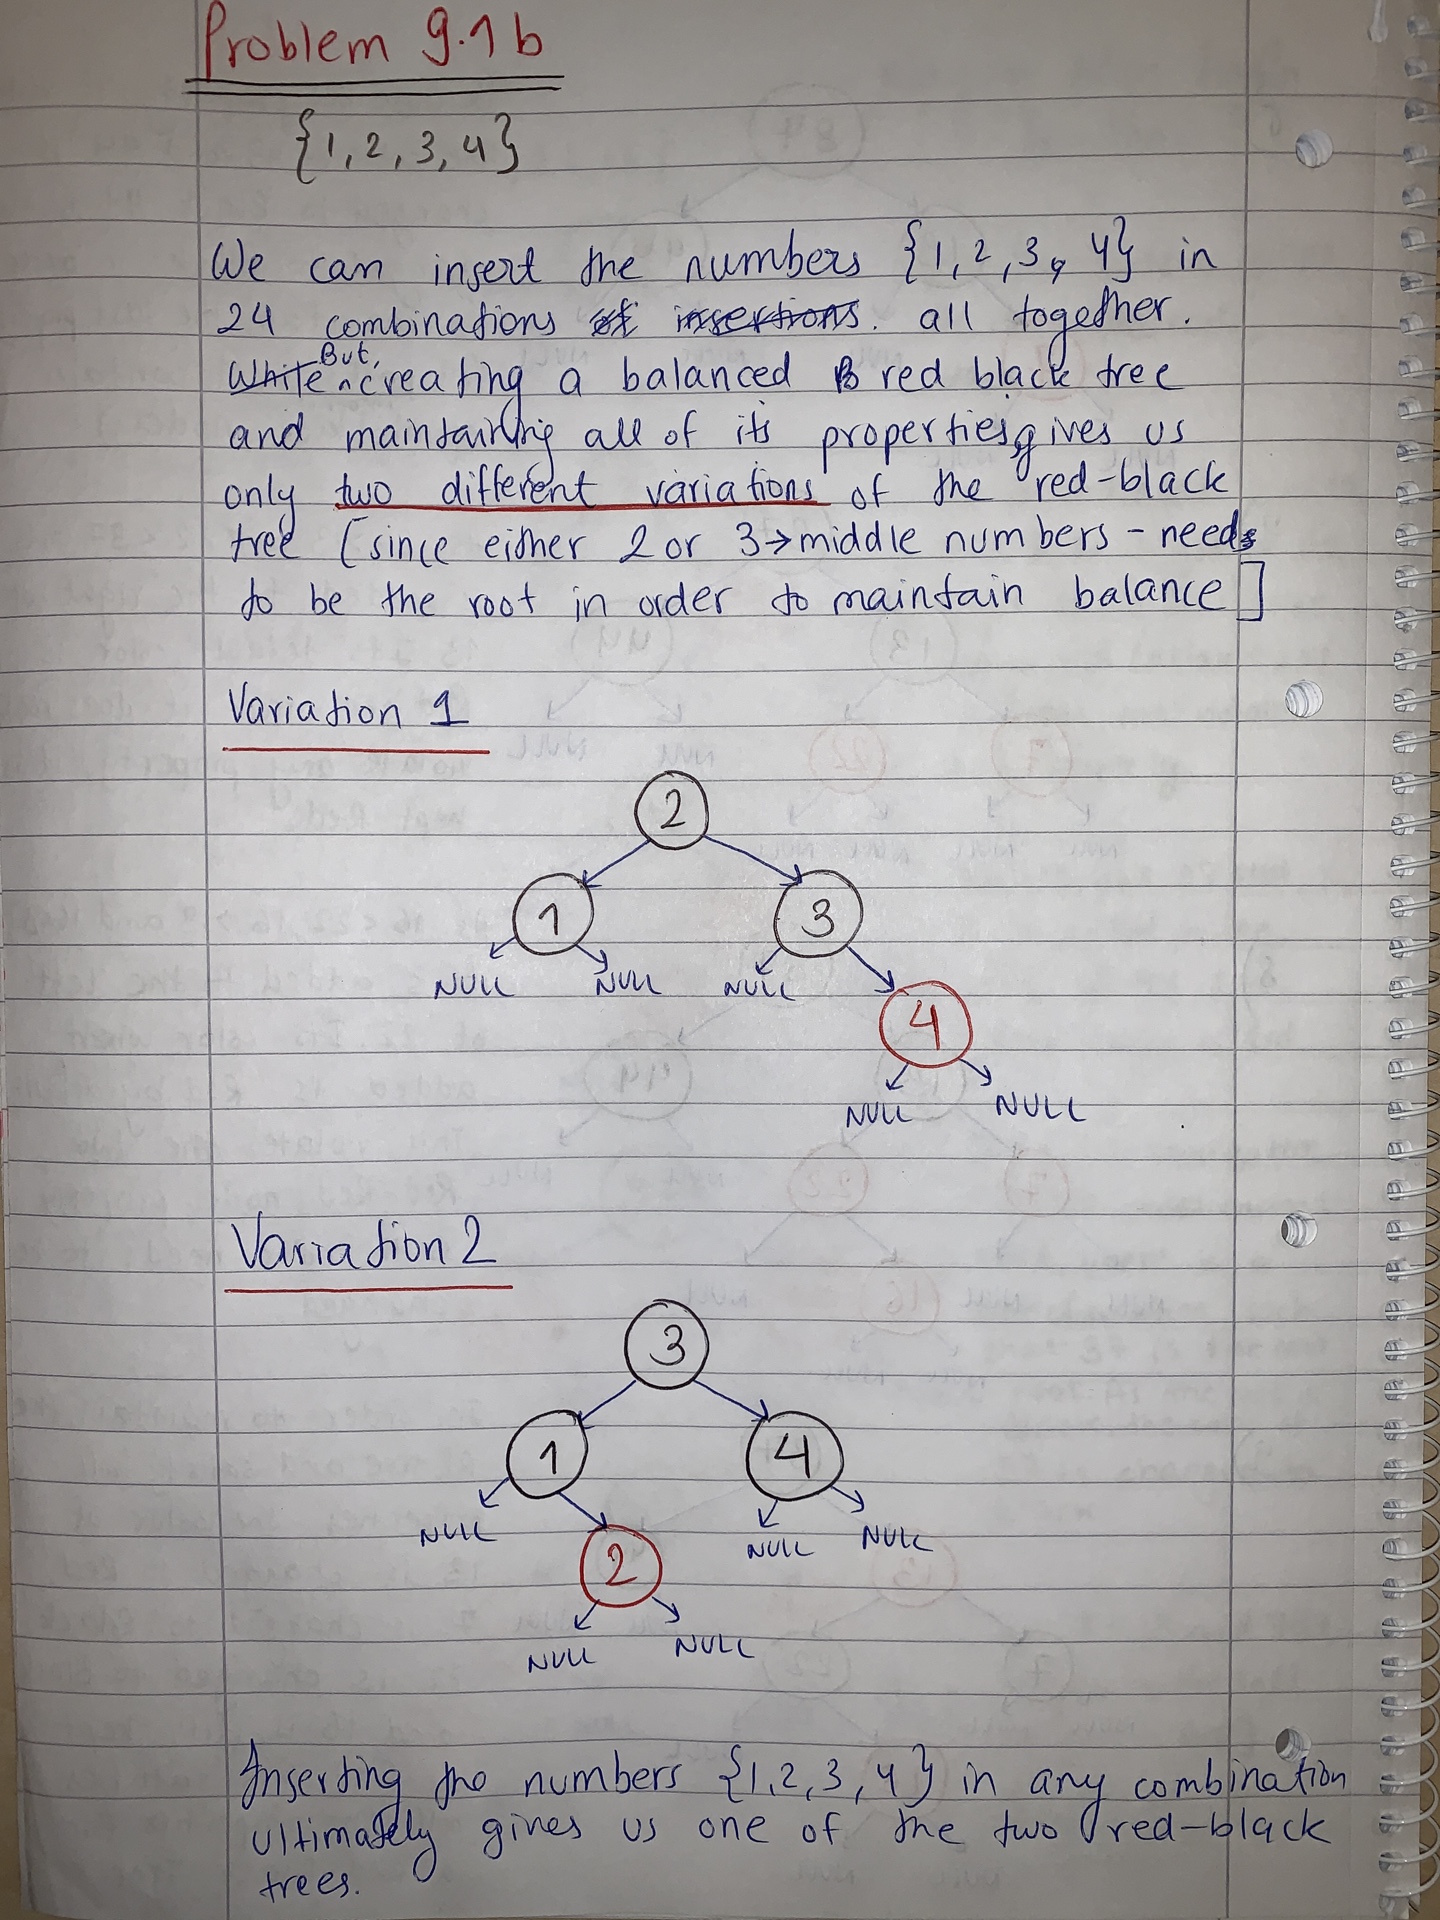 Problem 9.1b
{1, 2, 3, 4}
We can insert the numbers {1, 2, 3, 4} in
24 combinations of insertions. all together.
While But, creating a balanced B red black tree
and maintaining all of its properties, gives us
only two different variations of the red-black
tree [since either 2 or 3→middle numbers - needs
to be the root in order to maintain balance]
Variation 1
2
1 3
NULL NULL NULL
4
NULL NULL
Variation 2
3
1 4
NULL NULL NULL
2
NULL NULL
Inserting the numbers {1, 2, 3, 4} in any combination
ultimately gives us one of the two red-black
trees.